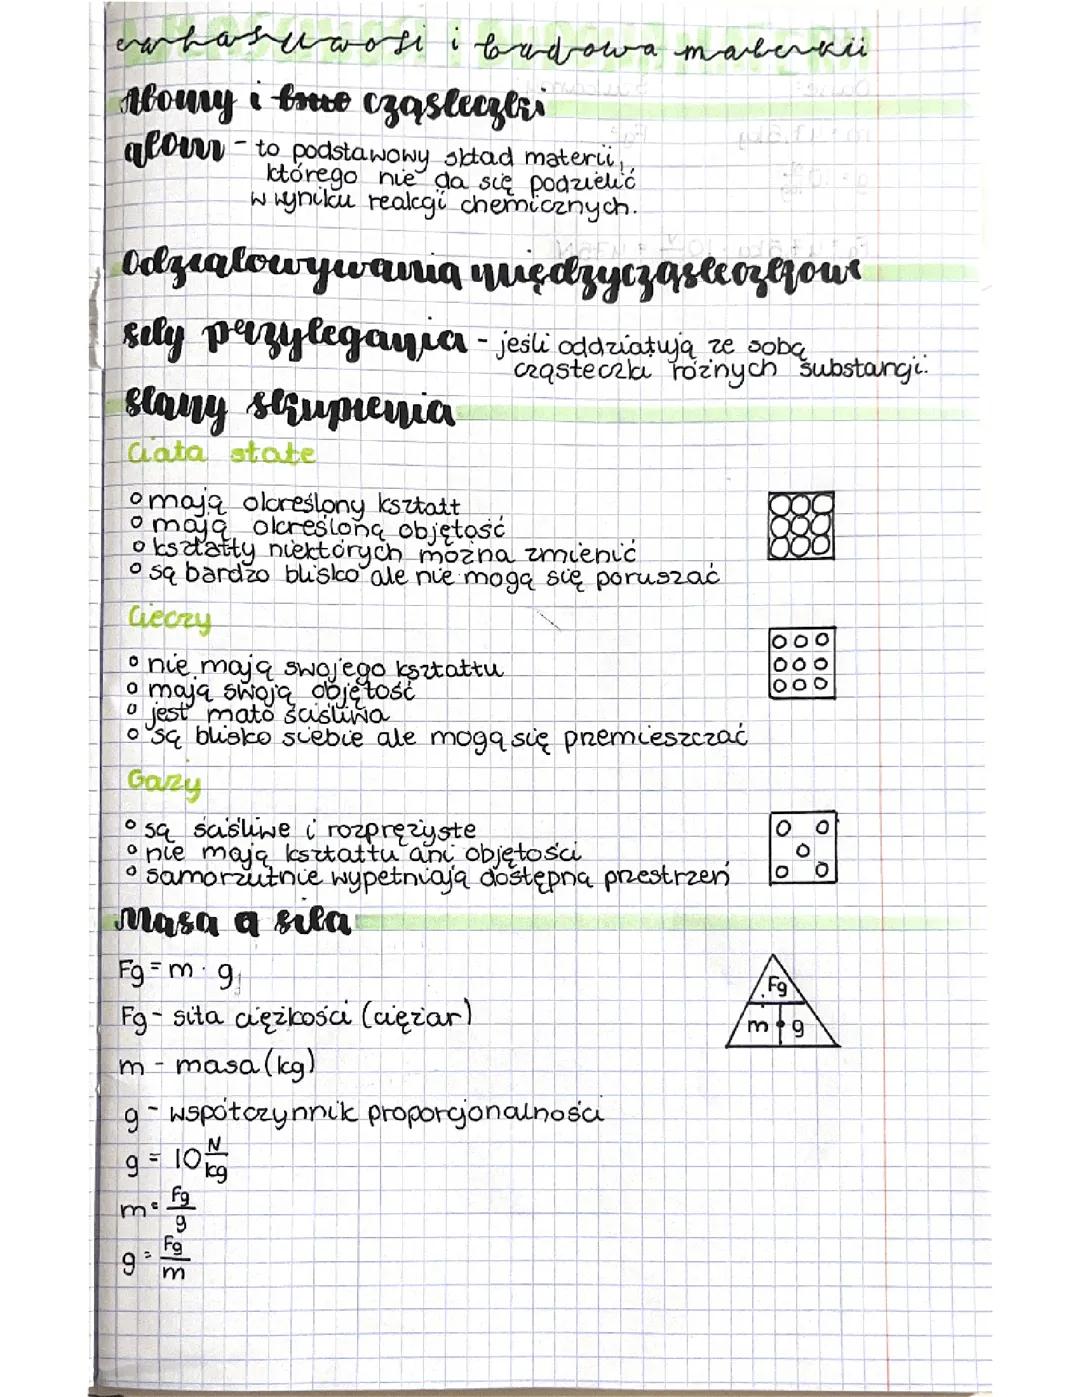 i budowa materii
Atomy i cząsteczki
atom - to podstawowy skład materii,
którego nie da się podzielić
w wyniku reakcji chemicznych.
Odziaływania międzycząsteczkowe
siły przylegania - jeśli oddziałują ze sobą
cząsteczki różnych substancji.
stany skupienia
Ciała stałe
o mają określony kształt
o mają określoną objętość
o kształty niektórych można zmienić
o są bardzo blisko ale nie mogą się poruszać
Cieczy
o nie mają swojego kształtu
o mają swoją objętość
o jest mało ściśliwa
o są blisko siebie ale mogą się przemieszczać
Gazy
o są ściśliwe i rozprężyste
o nie mają kształtu ani objętości
o samorzutnie wypełniają dostępną przestrzeń
Masa a siła
Fg = m · g
Fg
m · g
Fg - siła ciężkości (ciężar)
m - masa (kg)
g - współczynnik proporcjonalności
g = 10 N/kg
m = Fg/g
g = Fg/m